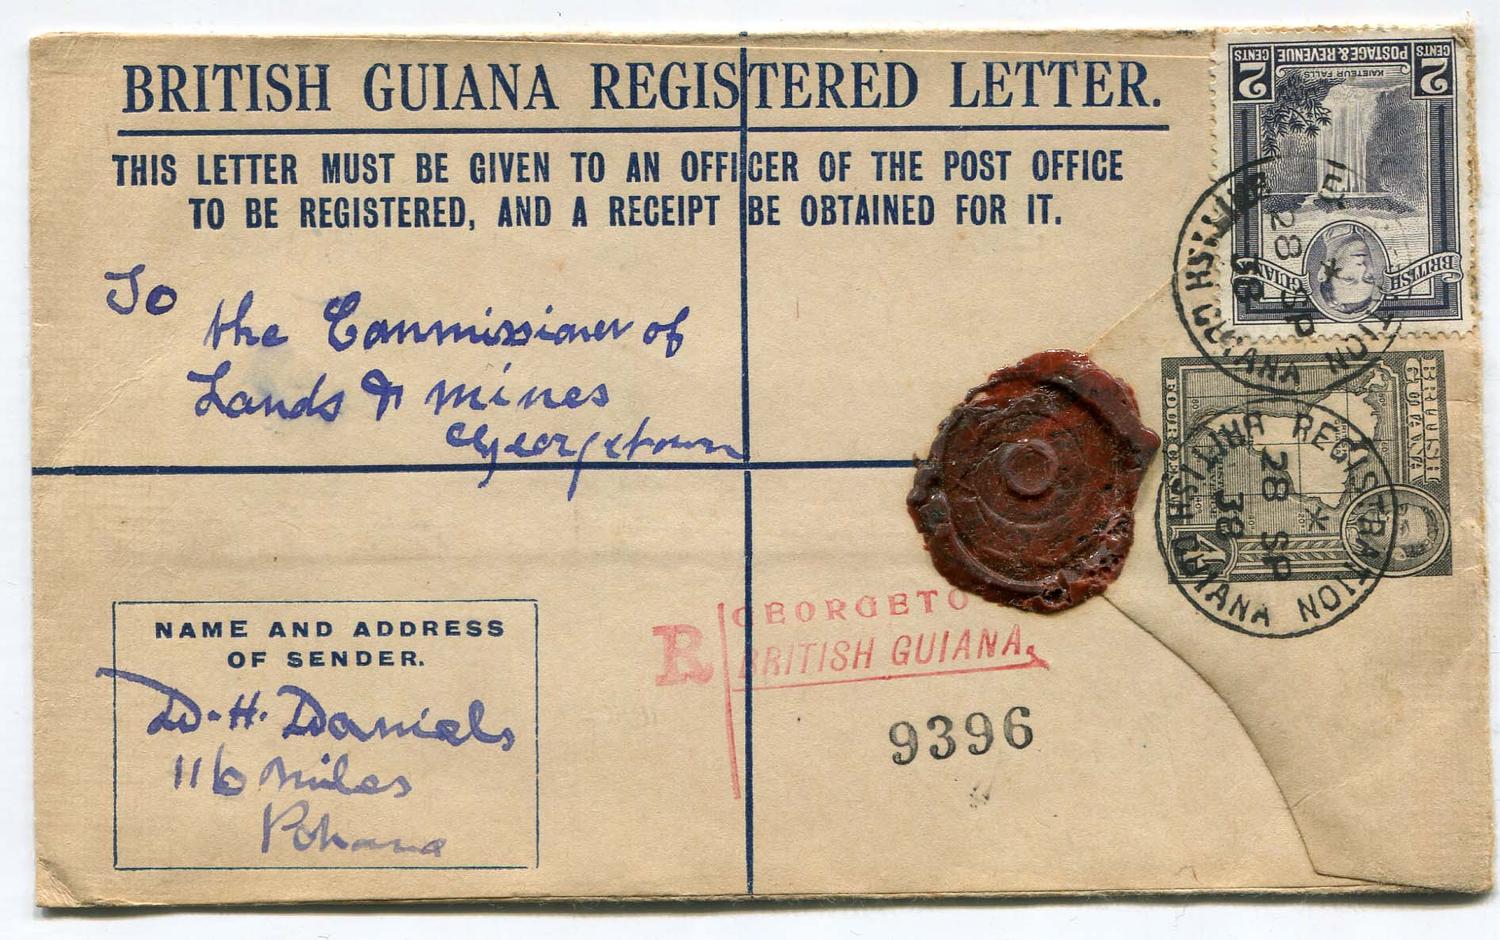 BRITISH GUIANA REGISTERED LETTER.
THIS LETTER MUST BE GIVEN TO AN OFFICER OF THE POST OFFICE
TO BE REGISTERED, AND A RECEIPT BE OBTAINED FOR IT.
2 CENTS POSTAGE & REVENUE 2 CENTS
KAIETEUR FALLS
BRITISH GUIANA
28 SP 38
BRITISH GUIANA
REGISTRATION BRITISH GUIANA
28 SP
38
To
the Commissioner of
Lands & mines
Georgetown
NAME AND ADDRESS
OF SENDER.
D. H. Daniels
116 miles
R
GEORGETO
BRITISH GUIANA.
9396